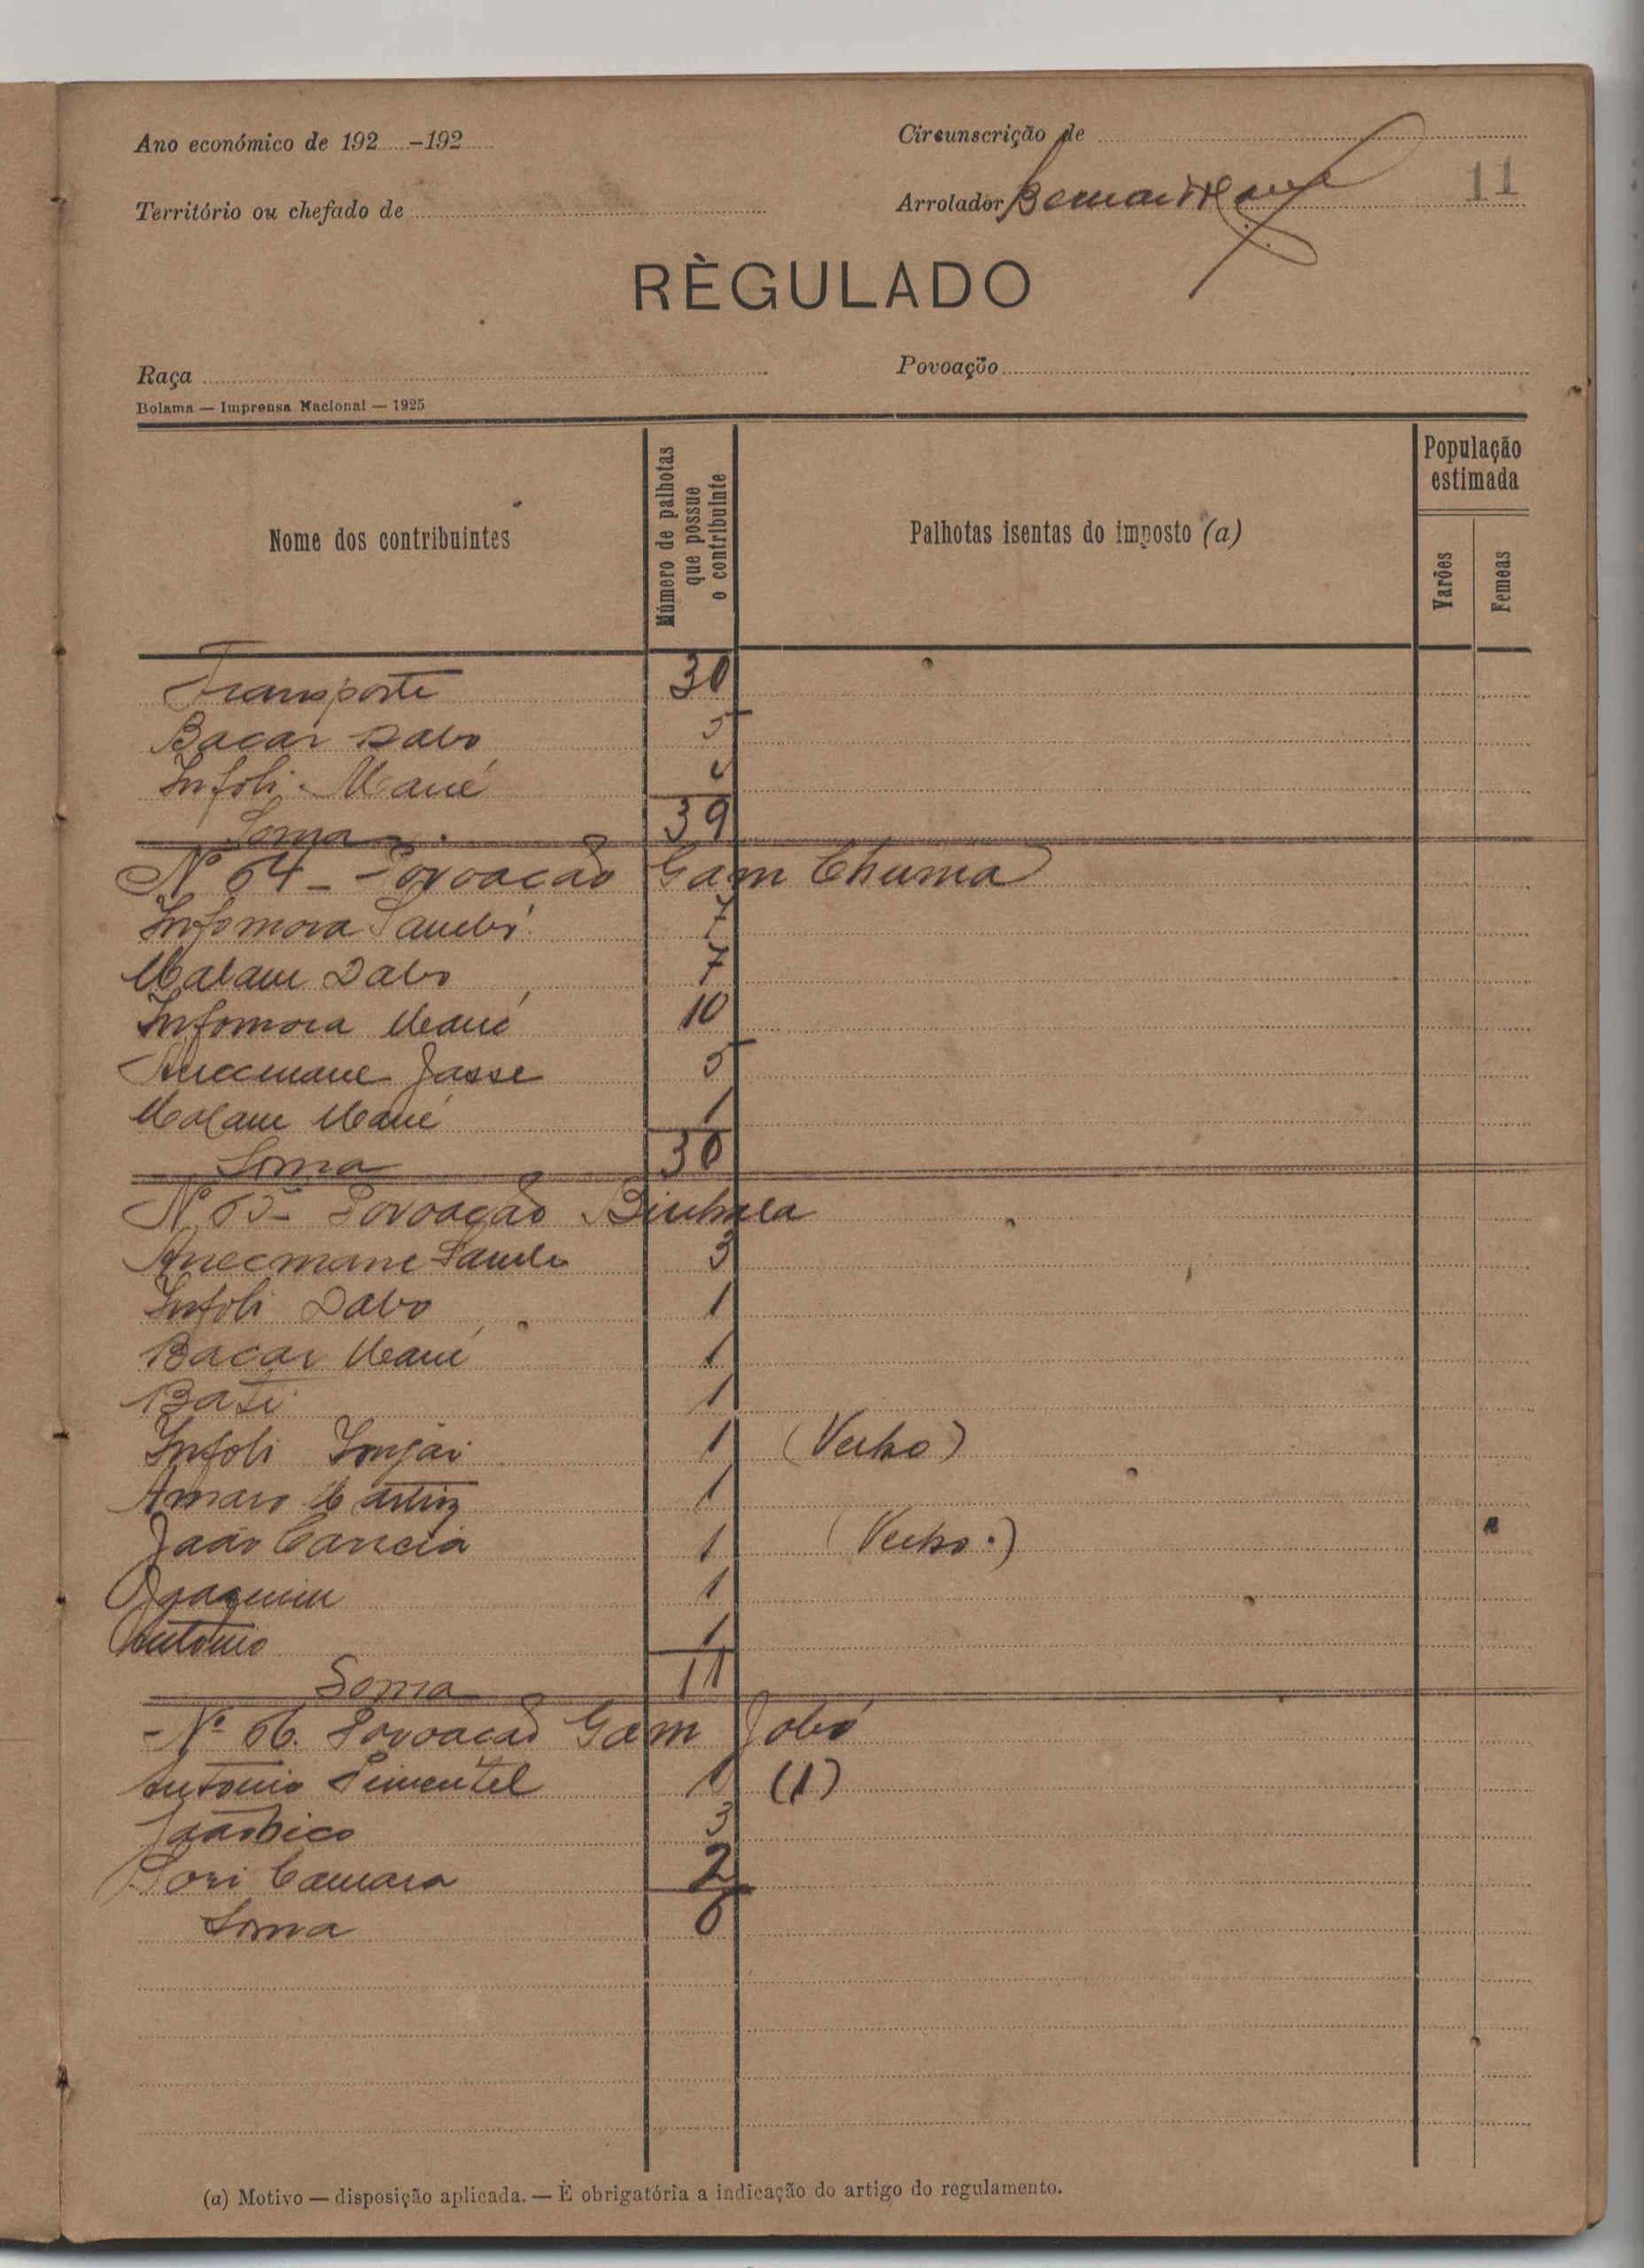 Ano económico de 192 -192
Circunscrição de
Território ou chefado de
Arrolador
11
RÈGULADO
Raça
Povoação
Bolama — Imprensa Nacional — 1925
Nome dos contribuintes
Número de palhotas que possue o contribuinte
Palhotas isentas do imposto (a)
População estimada
Varões
Femeas
Transporte 30
Bacar Dabo 5
Infoli Mané 4
Soma 39
Nº 64 - Povoação Gam Chuma
Infomora Sambú 7
Malam Dabo 7
Infomora Mané 10
Anecmane Jasse 5
Malam Mané 1
Soma 30
Nº 65 - Povoação
Anecmane 3
Infoli Dabo 1
Bacar Mané 1
Bati 1
Infoli Injai 1 (Velho)
Amaro Martinz 1
João Garcia 1 (Velho.)
Joaquim 1
Antonio 1
Soma 11
- Nº 66. Povoação Gam Jobó
Antonio Pimentel 1 (1)
João Bico 3
Sori Camara 2
Soma 6
(a) Motivo — disposição aplicada. — È obrigatória a indicação do artigo do regulamento.